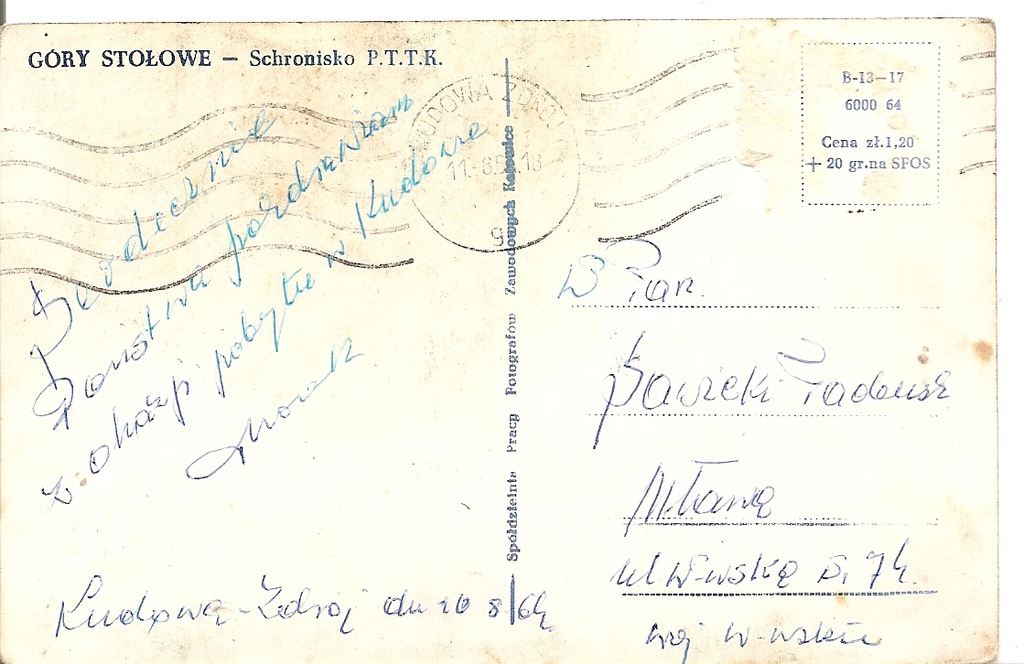 GÓRY STOŁOWE — Schronisko P.T.T.K.
Serdecznie
Państwa pozdrawiam
z okazji pobytu w Kudowie
Kudowa-Zdrój dn 10 8/64
Spółdzielnia Pracy Fotografów Zawodowych Katowice
KUDOWA ZDRÓJ
B-13-17
6000 64
Cena zł.1,20
+ 20 gr.na SFOS
W Pan.
Sawicki Tadeusz
Mława
ul W-wska 74.
woj W-wskie